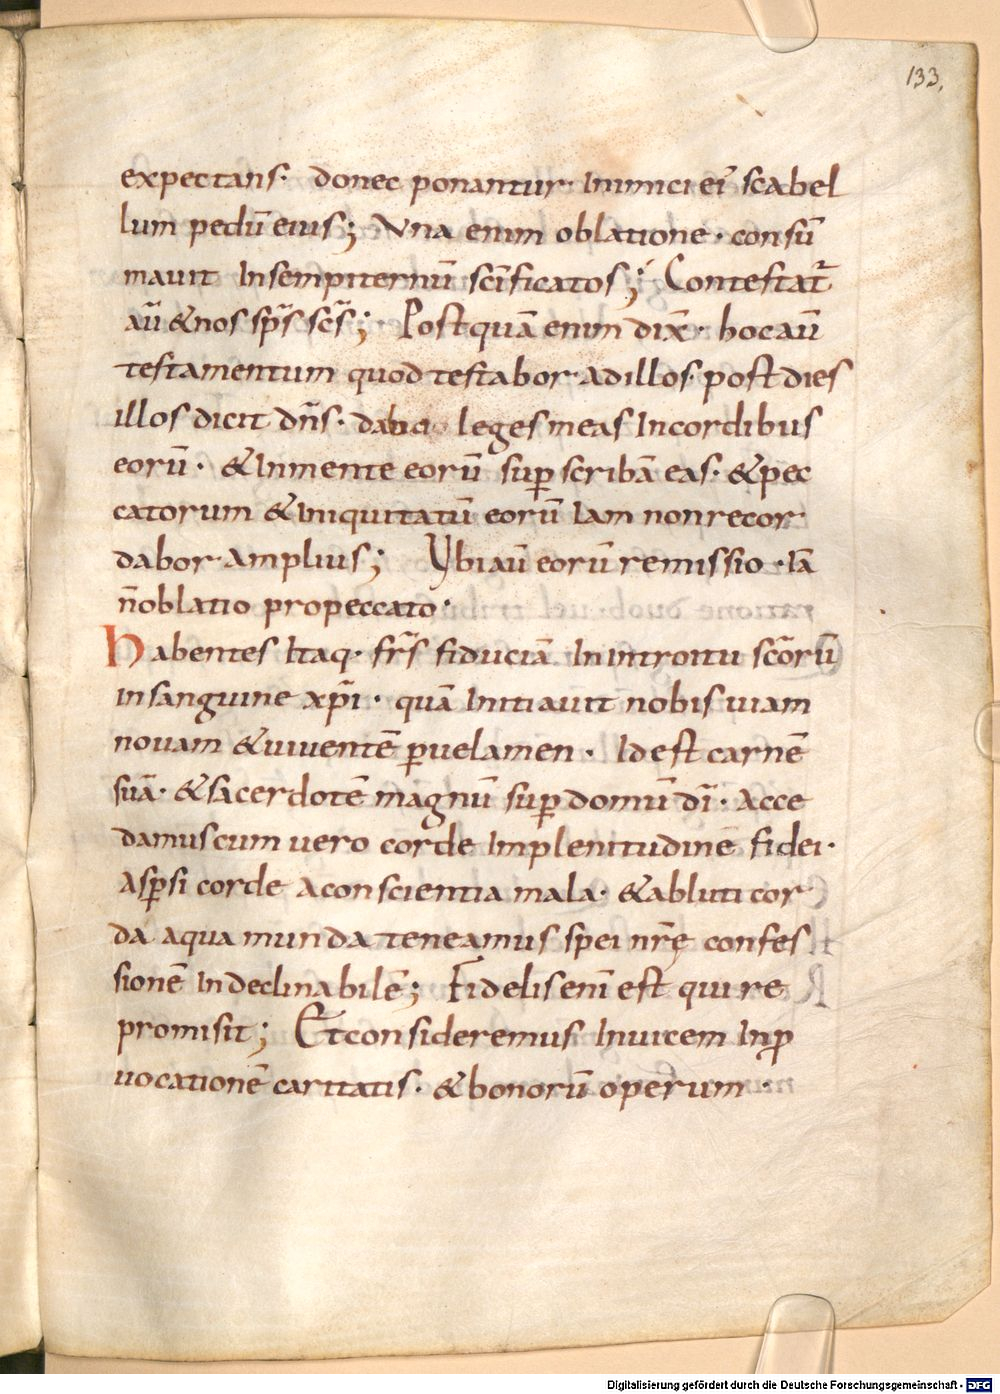 133,
expectans· donec ponantur· Inimici ei᷒ scabel
lum pedū eius; Vna enim oblatione· consū
mauit Insempiternū sc̄ificatos; Contestat᷑
aū &nos sp̄s sc̄s; Postquā enim dix̄· hocaū
testamentum quod testabor· adillos· post dies
illos dicit dn̄s· dabo leges meas Incordibus
eorū· &Inmente eorū suꝑ scribā eas· &pec
catorum &Iniquitatū eorū Iam nonrecor
dabor· Amplius; Vbiaū eorū remissio· Iā
n̄oblatio propeccato·
Habentes Itaq· fr̄s fiduciā Inintroitu sc̄orū
insanguine xp̄i· quā Initiauit nobis uiam
nouam &uiuentē ꝑuelamen· Idest carnē
suā· &sacerdotē magnū suꝑ domū dī· Acce
damuscum uero corde Inplenitudinē fidei·
Asꝑsi corde aconscientia mala· &abluti cor
da aqua munda teneamus spei nr̄ę confes
sionē Indeclinabilē; Fidelisenī est quire
promisit; Etconsideremus Inuicem Inꝓ
uocationē caritatis· &bonorū operum·
Digitalisierung gefördert durch die Deutsche Forschungsgemeinschaft - DFG